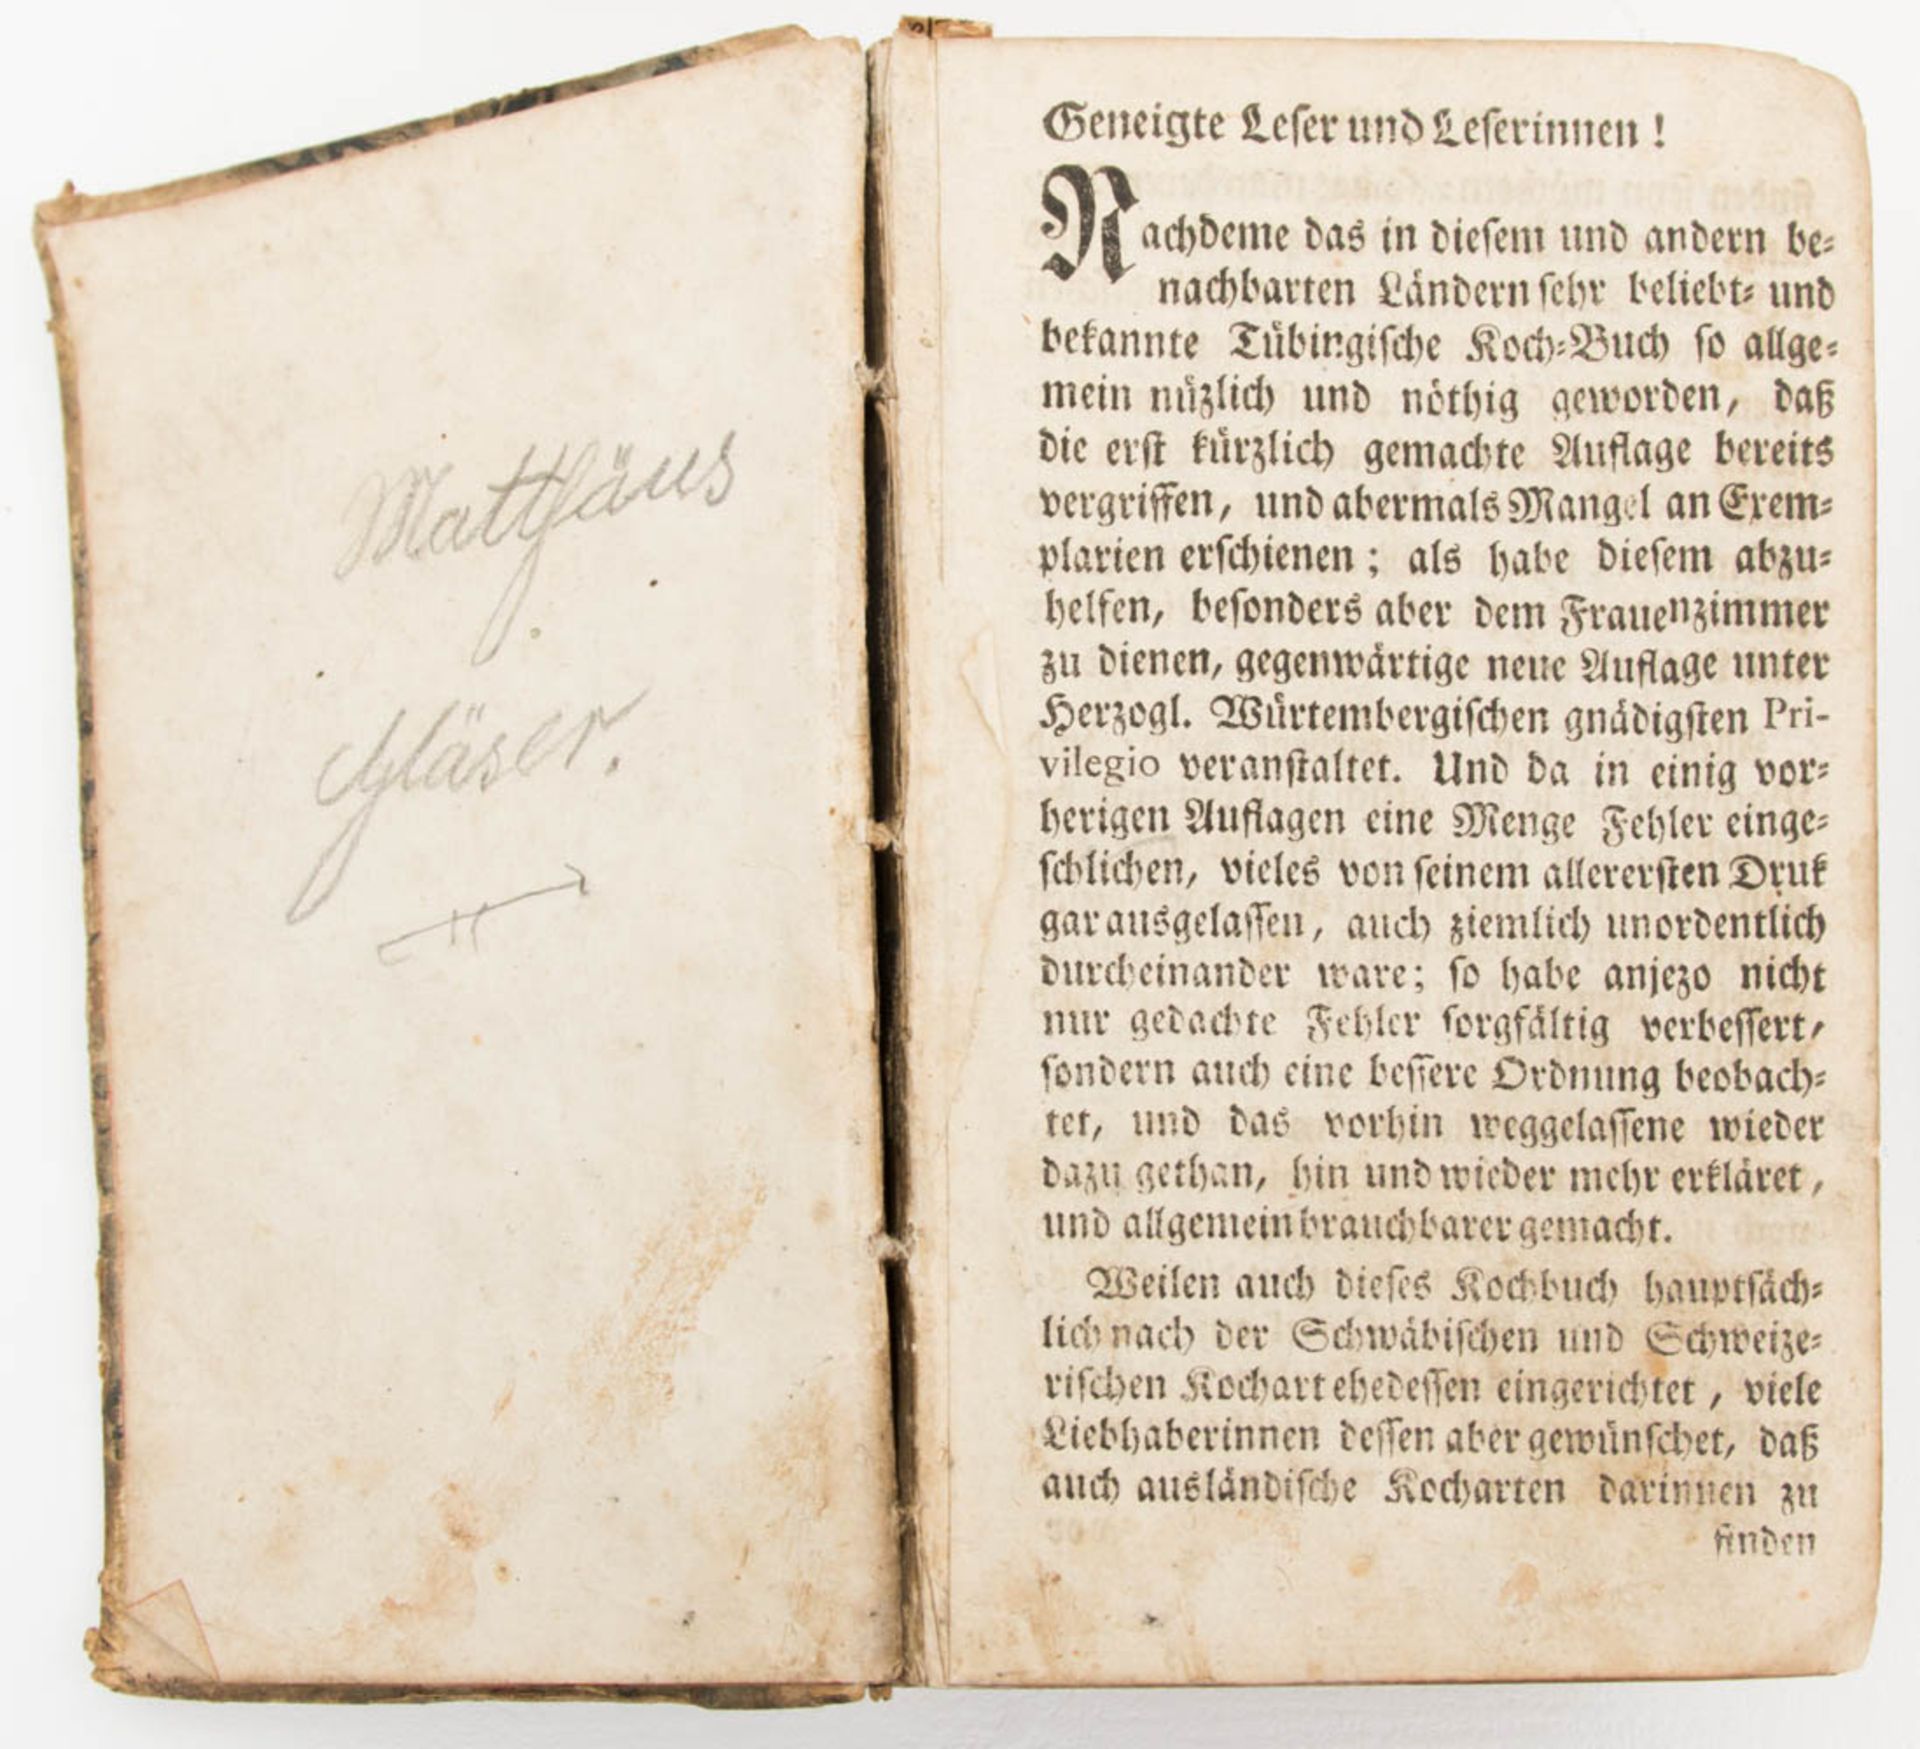 Matthäus
Gläser.
Geneigte Leser und Leserinnen!
Nachdeme das in diesem und andern be-
nachbarten Ländern sehr beliebt- und
bekannte Tübingische Koch-Buch so allge-
mein nüzlich und nöthig geworden, daß
die erst kürzlich gemachte Auflage bereits
vergriffen, und abermals Mangel an Exem-
plarien erschienen; als habe diesem abzu-
helfen, besonders aber dem Frauenzimmer
zu dienen, gegenwärtige neue Auflage unter
Herzogl. Würtembergischen gnädigsten Pri-
vilegio veranstaltet. Und da in einig vor-
herigen Auflagen eine Menge Fehler einge-
schlichen, vieles von seinem allerersten Druk
gar ausgelassen, auch ziemlich unordentlich
durcheinander ware; so habe anjezo nicht
nur gedachte Fehler sorgfältig verbessert,
sondern auch eine bessere Ordnung beobach-
tet, und das vorhin weggelassene wieder
dazu gethan, hin und wieder mehr erkläret,
und allgemein brauchbarer gemacht.
Weilen auch dieses Kochbuch hauptsäch-
lich nach der Schwäbischen und Schweize-
rischen Kochart ehedessen eingerichtet, viele
Liebhaberinnen dessen aber gewünschet, daß
auch ausländische Kocharten darinnen zu
finden